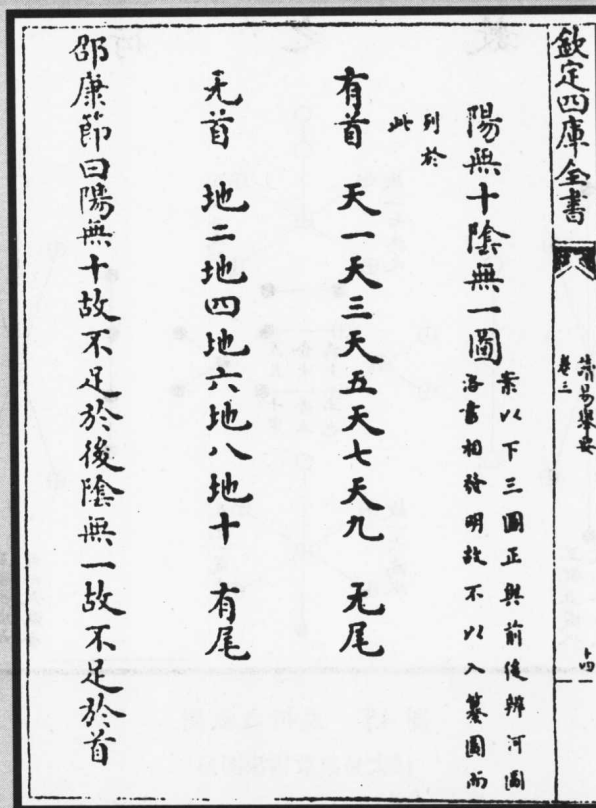 欽定四庫全書
讀易舉要
卷三
十四
陽無十陰無一圖
案以下三圖正與前後辨河圖
洛書相發明故不以入纂圖而
列於
此
有首 天一天三天五天七天九 无尾
无首 地二地四地六地八地十 有尾
邵康節曰陽無十故不足於後陰無一故不足於首